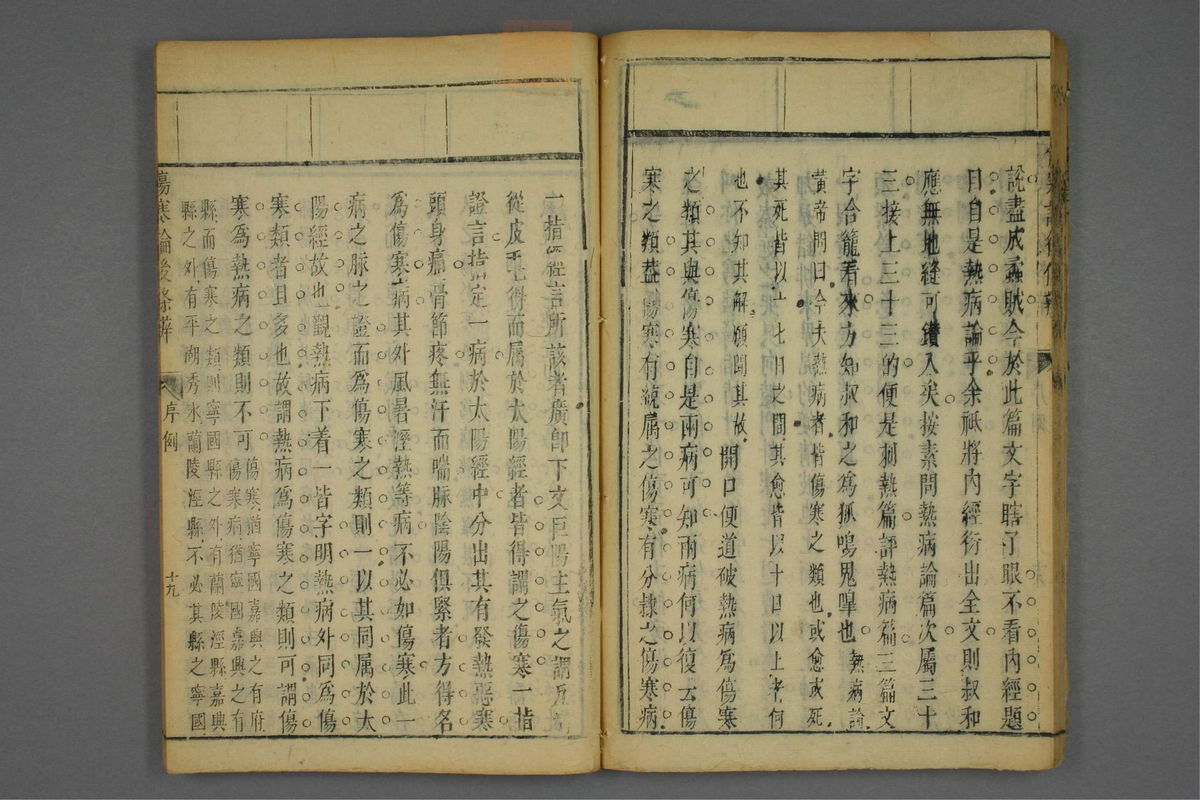 說盡成蟊賊今於此篇文字瞎了眼不看內經題
目自是熱病論乎余祗將內經衍出全文則叔和
應無地縫可鑽入矣按素問熱病論篇次屬三十
三接上三十三的便是刺熱篇評熱病篇三篇文
字合籠看來方知叔和之爲狐鳴鬼嘷也熱病論
黃帝問曰今夫熱病者皆傷寒之類也或愈或死
其死皆以六七日之間其愈皆以十日以上者何
也不知其解願聞其故開口便道破熱病爲傷寒
之類其與傷寒自是兩病可知兩病何以復云傷
寒之類葢傷寒有統屬之傷寒有分隷之傷寒病
一指經言所該者廣卽下文巨陽主氣之謂
從皮毛得而屬於太陽經者皆得謂之傷寒一指
證言指定一病於太陽經中分出其有發熱惡寒
頭身痛骨節疼無汗而喘脈陰陽俱緊者方得名
爲傷寒病其外風暑溼熱等病不必如傷寒此一
病之脈之證而爲傷寒之類則一以其同属於太
陽經故也觀熱病下着一皆字明熱病外同爲傷
寒類者且多也故謂熱病爲傷寒之類則可謂傷
寒爲熱病之類則不可傷寒猶寧國嘉興之有府
傷寒病猶寧國嘉興之有
縣而傷寒之類則寧國縣之外有蘭陵涇縣嘉興
縣之外有平湖秀水蘭陵涇縣不必其縣之寧國
傷寒論後條辨
序例
十九